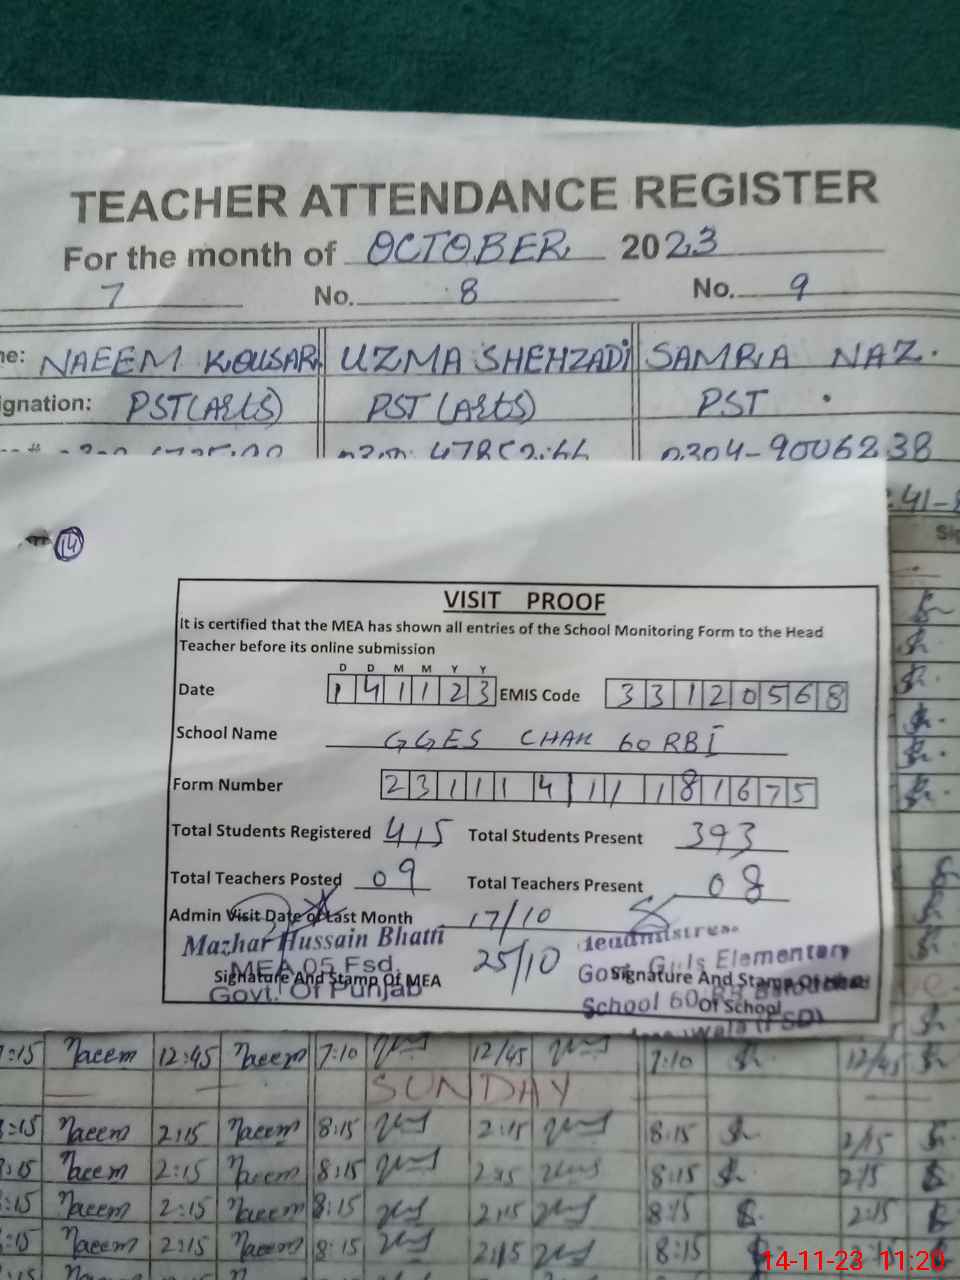 TEACHER ATTENDANCE REGISTER
For the month of OCTOBER 2023
7 No. 8 No. 9
NAEEM KOUSAR UZMA SHEHZADI SAMRIA NAZ.
PST(Arts) PST (Arts) PST
0304-9006238
14
VISIT PROOF
It is certified that the MEA has shown all entries of the School Monitoring Form to the Head
Teacher before its online submission
D D M M Y Y
Date 141123 EMIS Code 33120568
School Name GGES CHAK 60 RB I
Form Number 231114111181675
Total Students Registered 415 Total Students Present 393
Total Teachers Posted 09 Total Teachers Present 08
Admin Visit Date of Last Month 17/10
25/10
Mazhar Hussain Bhatti
MEA 05 Fsd
Govt. Of Punjab
Signature And Stamp Of MEA
Headmistress
Govt. Girls Elementary
School 60
Signature And Stamp Of
Of School
7:15 Naeem 12:45 Naeem 7:10 12/45 7:10 12/45
SUNDAY
8:15 Naeem 2:15 Naeem 8:15 2:15 8:15 2/15
Naeem 2:15 Naeem 8:15 2:15 8:15 2/15
:15 Naeem 2:15 Naeem 8:15 2:15 8:15 2:15
:15 Naeem 2:15 Naeem 8:15 2:15 8:15
14-11-23 11:20